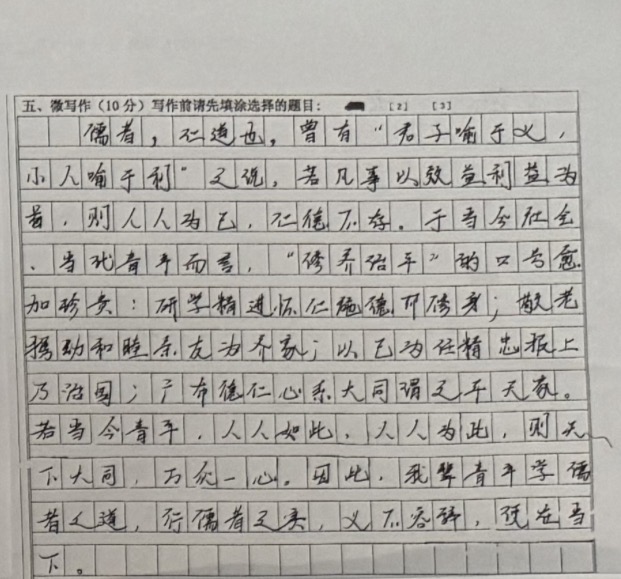 五、微写作(10分)写作前请先填涂选择的题目: [2] [3]
儒者,仁道也,曾有“君子喻于义,
小人喻于利”之说,若凡事以效益利益为
首,则人人为己,仁德不存。于当今社会
、当代青年而言,“修齐治平”的口号愈
加珍贵:研学精进怀仁施德即修身;敬老
携幼和睦亲友为齐家;以己为任精忠报上
乃治国;广布德仁心系大同谓之平天下。
若当今青年,人人如此,人人为此,则天
下大同,万众一心。因此,我辈青年学儒
者之道,行儒者之实,义不容辞,便在当
下。